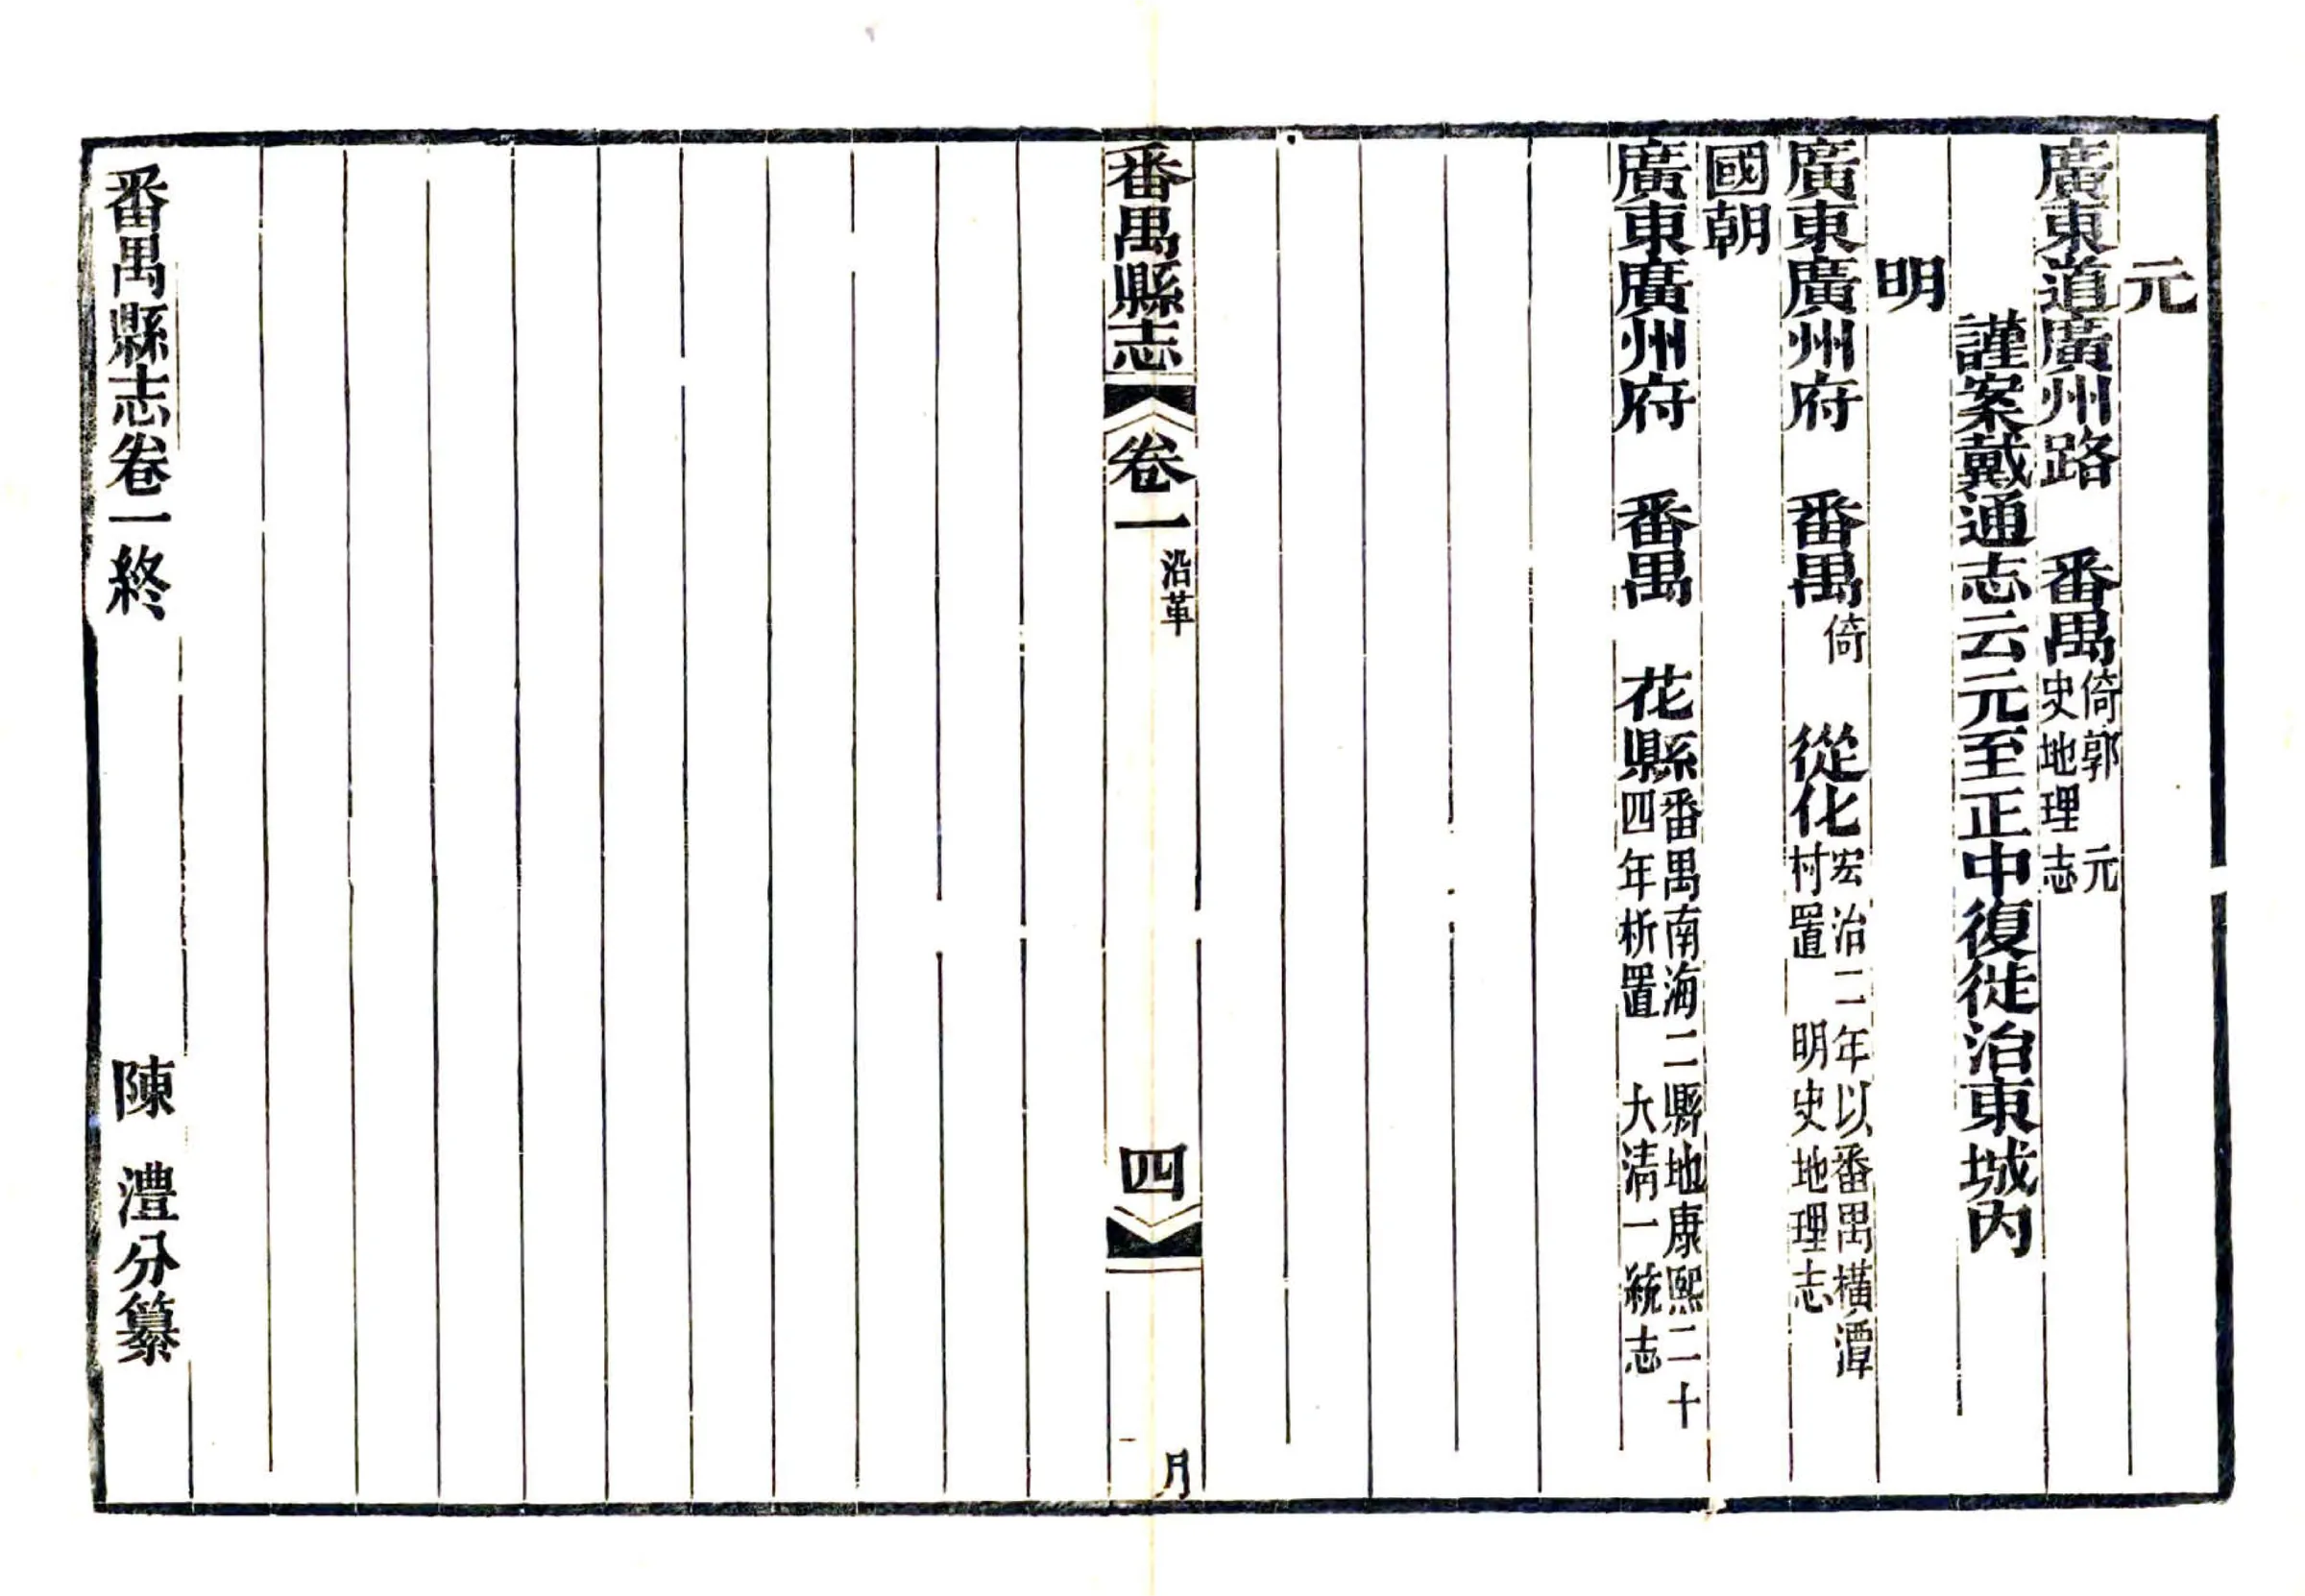 元
廣東道廣州路　番禺倚郭　元史地理志
謹案戴通志云元至正中復徙治東城内
明
廣東廣州府　番禺倚　從化宏治二年以番禺橫潭村置　明史地理志
國朝
廣東廣州府　番禺　花縣番禺南海二縣地康熙二十四年析置　大清一統志
番禺縣志　卷一　沿革　四　月
番禺縣志卷一終　陳　澧分纂